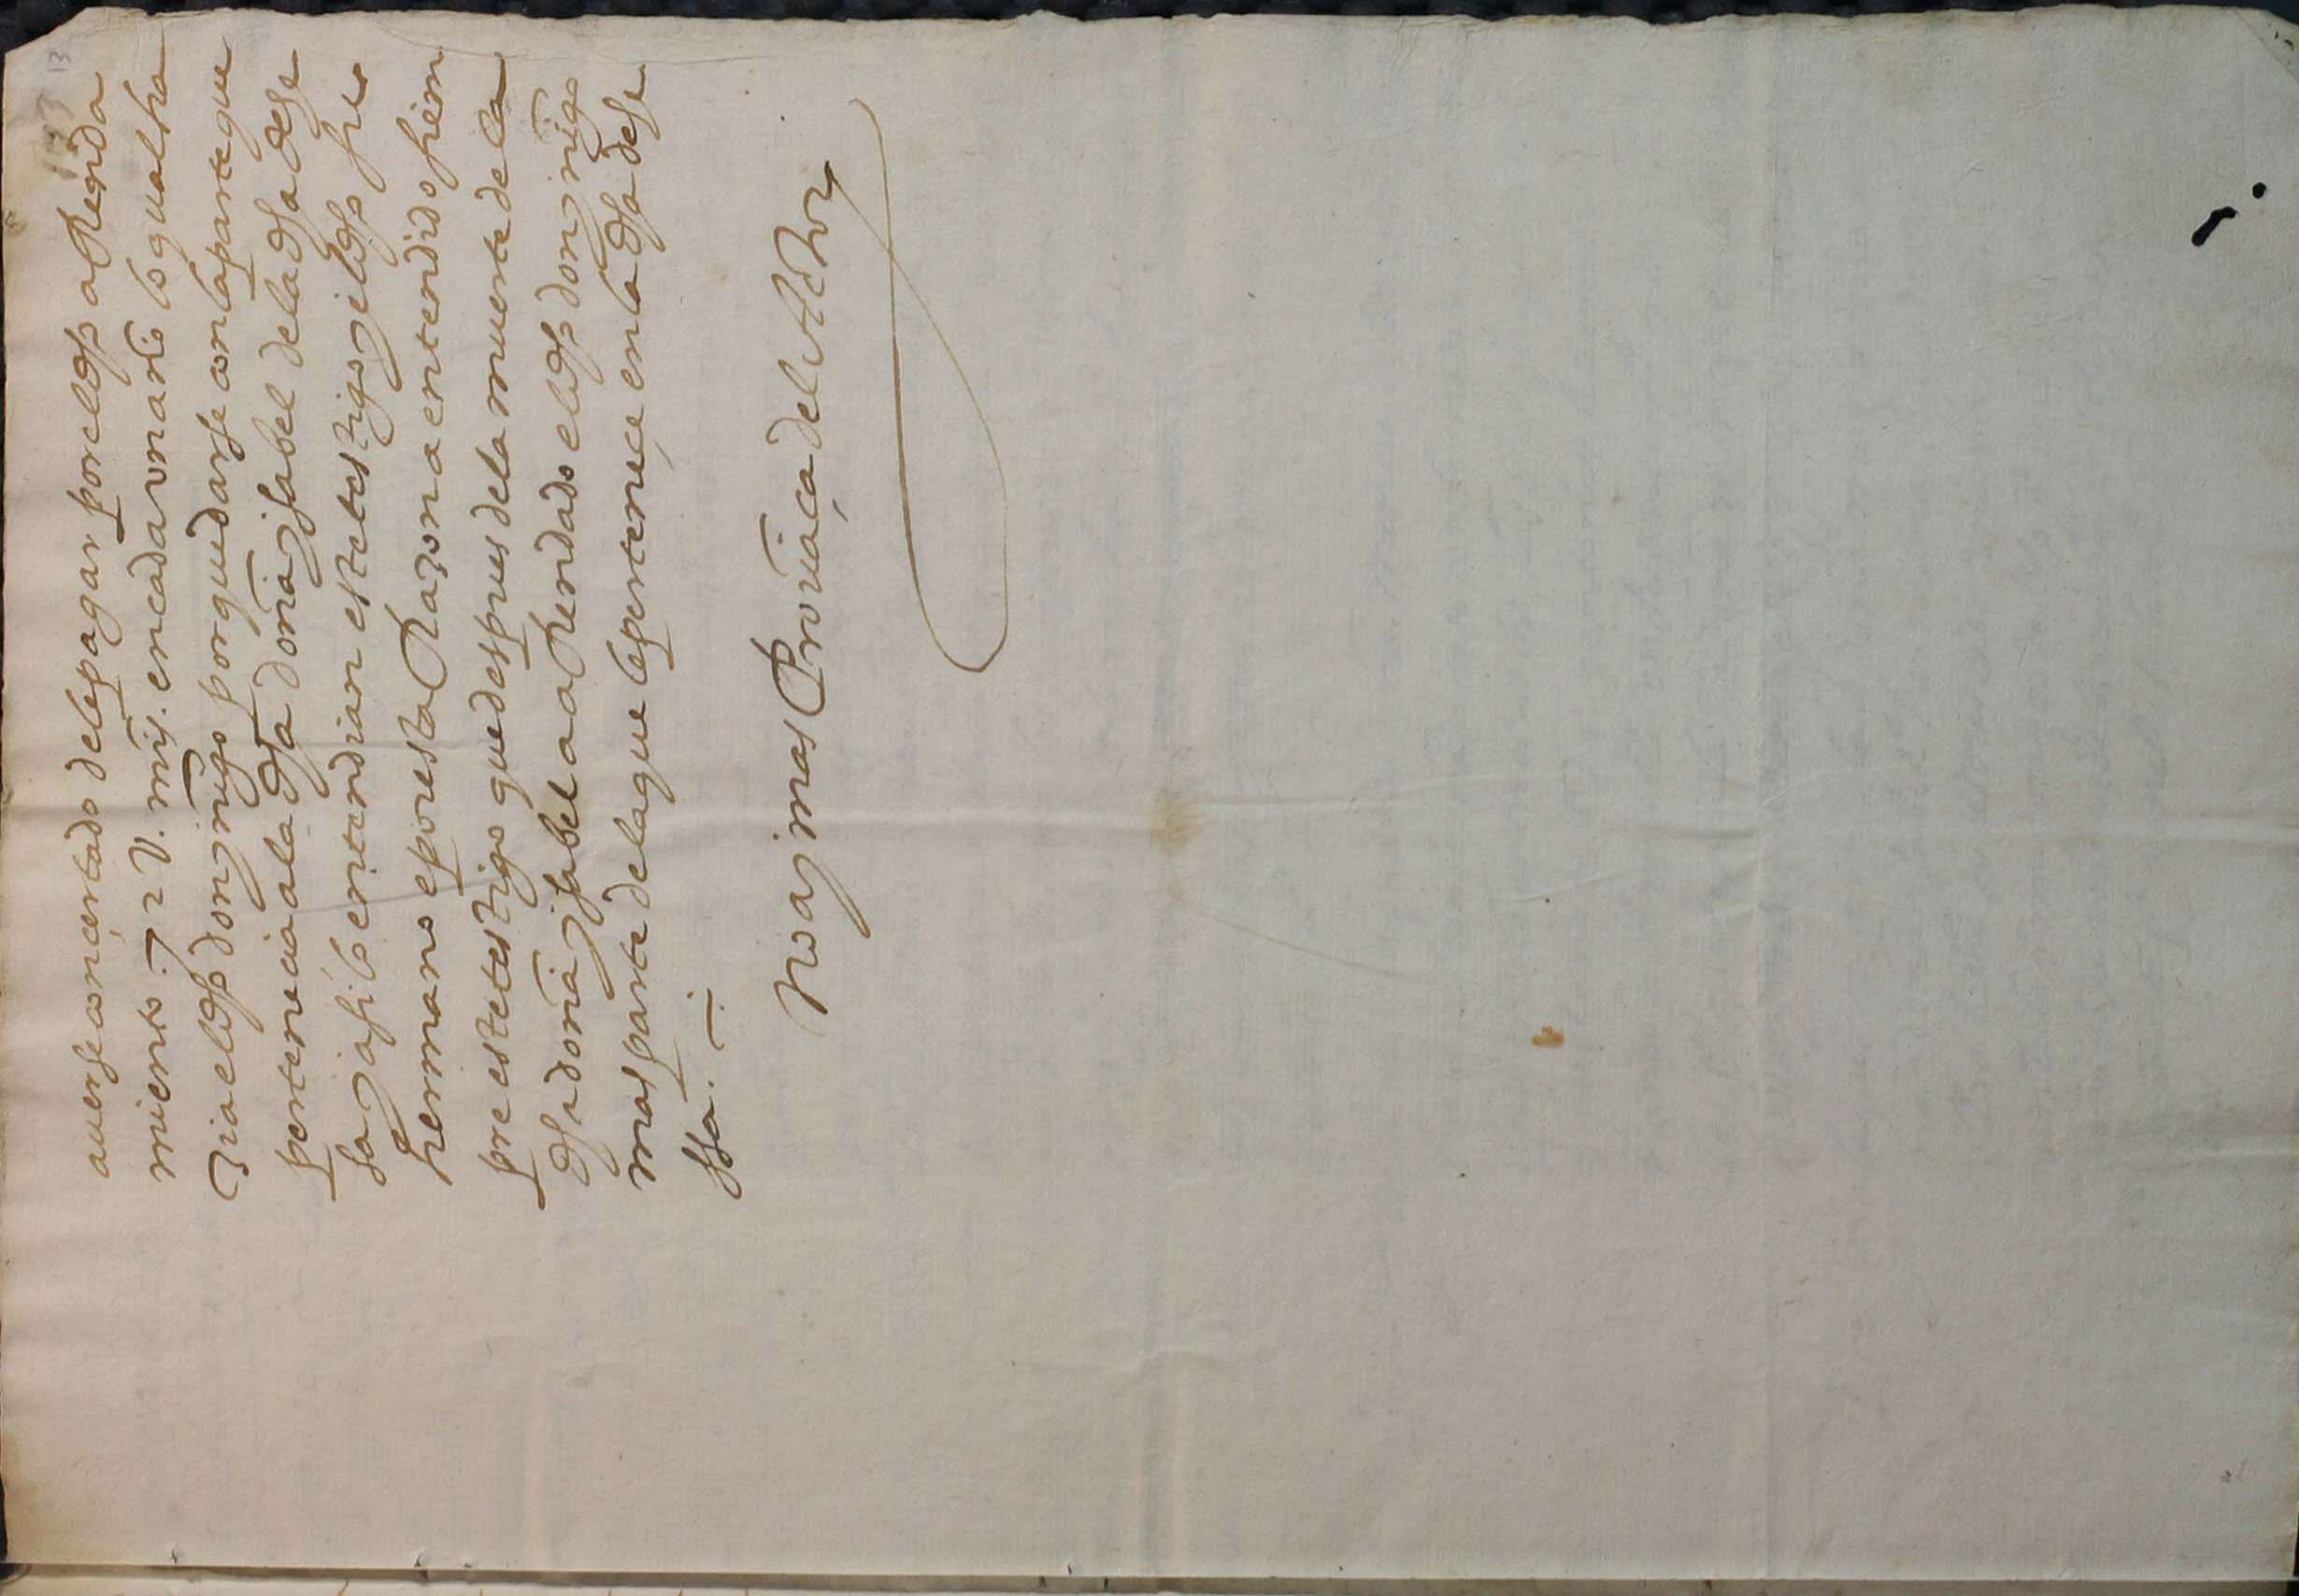 averse conçertado de le pagar por el dho aRenda
miento .7 2 U. mrs. en cada vn año lo qual ha
zia el dho don ynigo por quedarse con la parte que
pertenecia a la dha doña ysabel de la dha dehe
sa y asi lo entendian este testigo y el dho su
hermano e por esta Razon a entendido siem
pre este testigo que despues de la muerte de la
dha doña ysabel a aRendado el dho don ynigo
mas parte de la que le perteneçe en la dha dehe
ssa. —
no ay mas Provãça del Actor